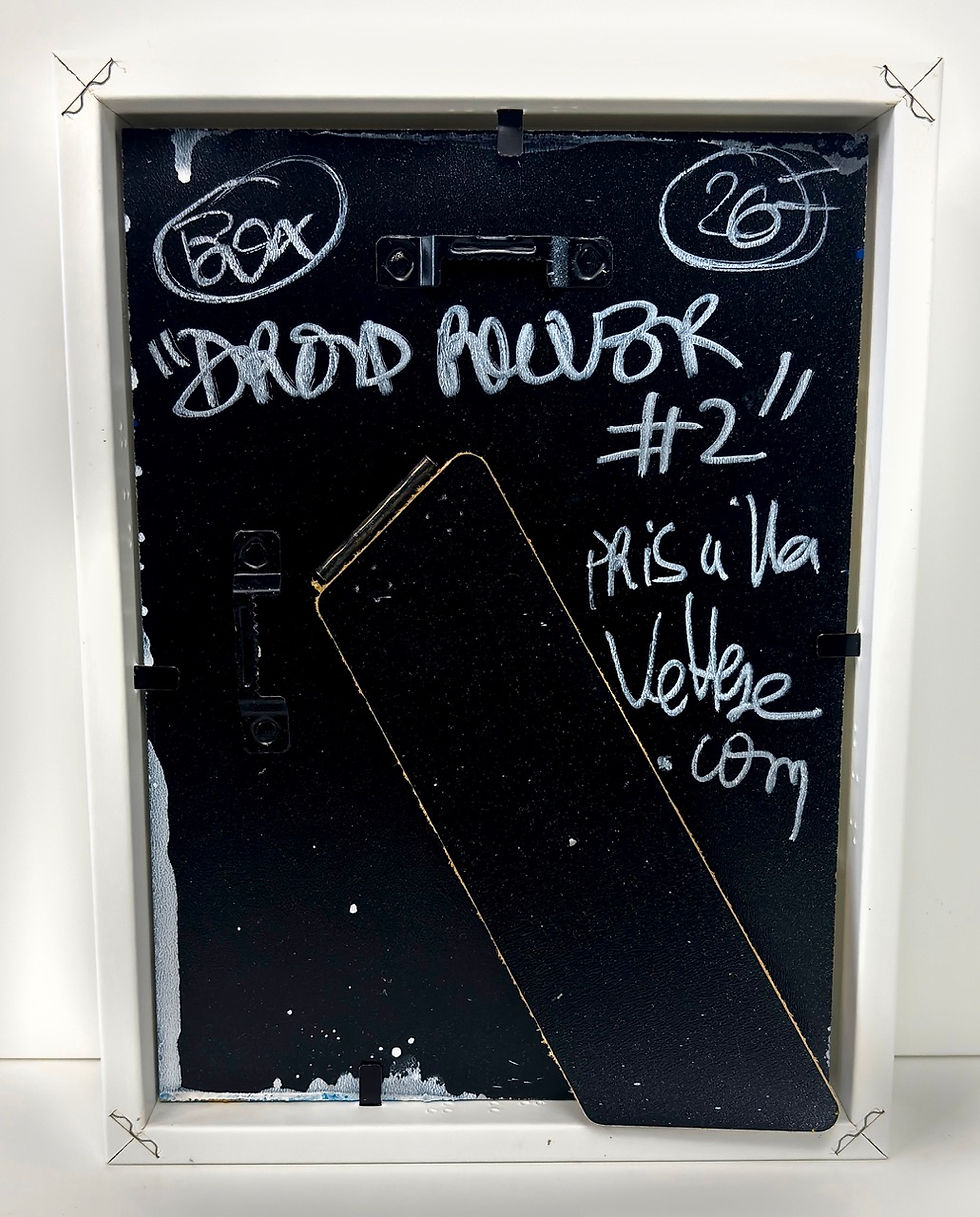 26
"DROID POWER
#2"
PRiscilla
Vettese
.com